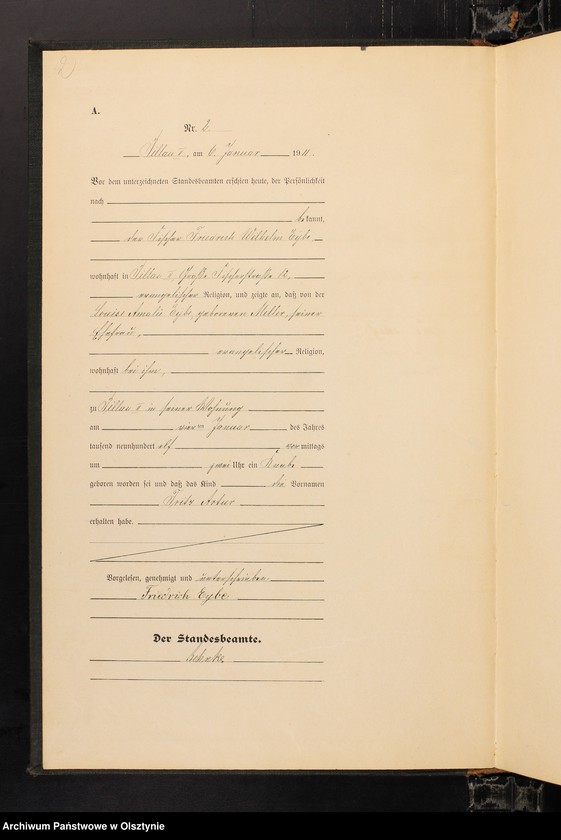 2
A.
Nr. 2.
Pillau II, am 6. Januar 1911.
Vor dem unterzeichneten Standesbeamten erschien heute, der Persönlichkeit
nach
bekannt,
der Fischer Friedrich Wilhelm Eybe
wohnhaft in Pillau II, Große Fischerstraße 12,
evangelischer Religion, und zeigte an, daß von der
Louise Amalie Eybe, geborenen Meller, seiner
Ehefrau,
evangelischer Religion,
wohnhaft bei ihm,
zu Pillau II in seiner Wohnung
am vierten Januar des Jahres
tausend neunhundert elf vormittags
um zwei Uhr ein Knabe
geboren worden sei und daß das Kind die Vornamen
Fritz Artur
erhalten habe.
Vorgelesen, genehmigt und unterschrieben.
Friedrich Eybe
Der Standesbeamte.
Archiwum Państwowe w Olsztynie